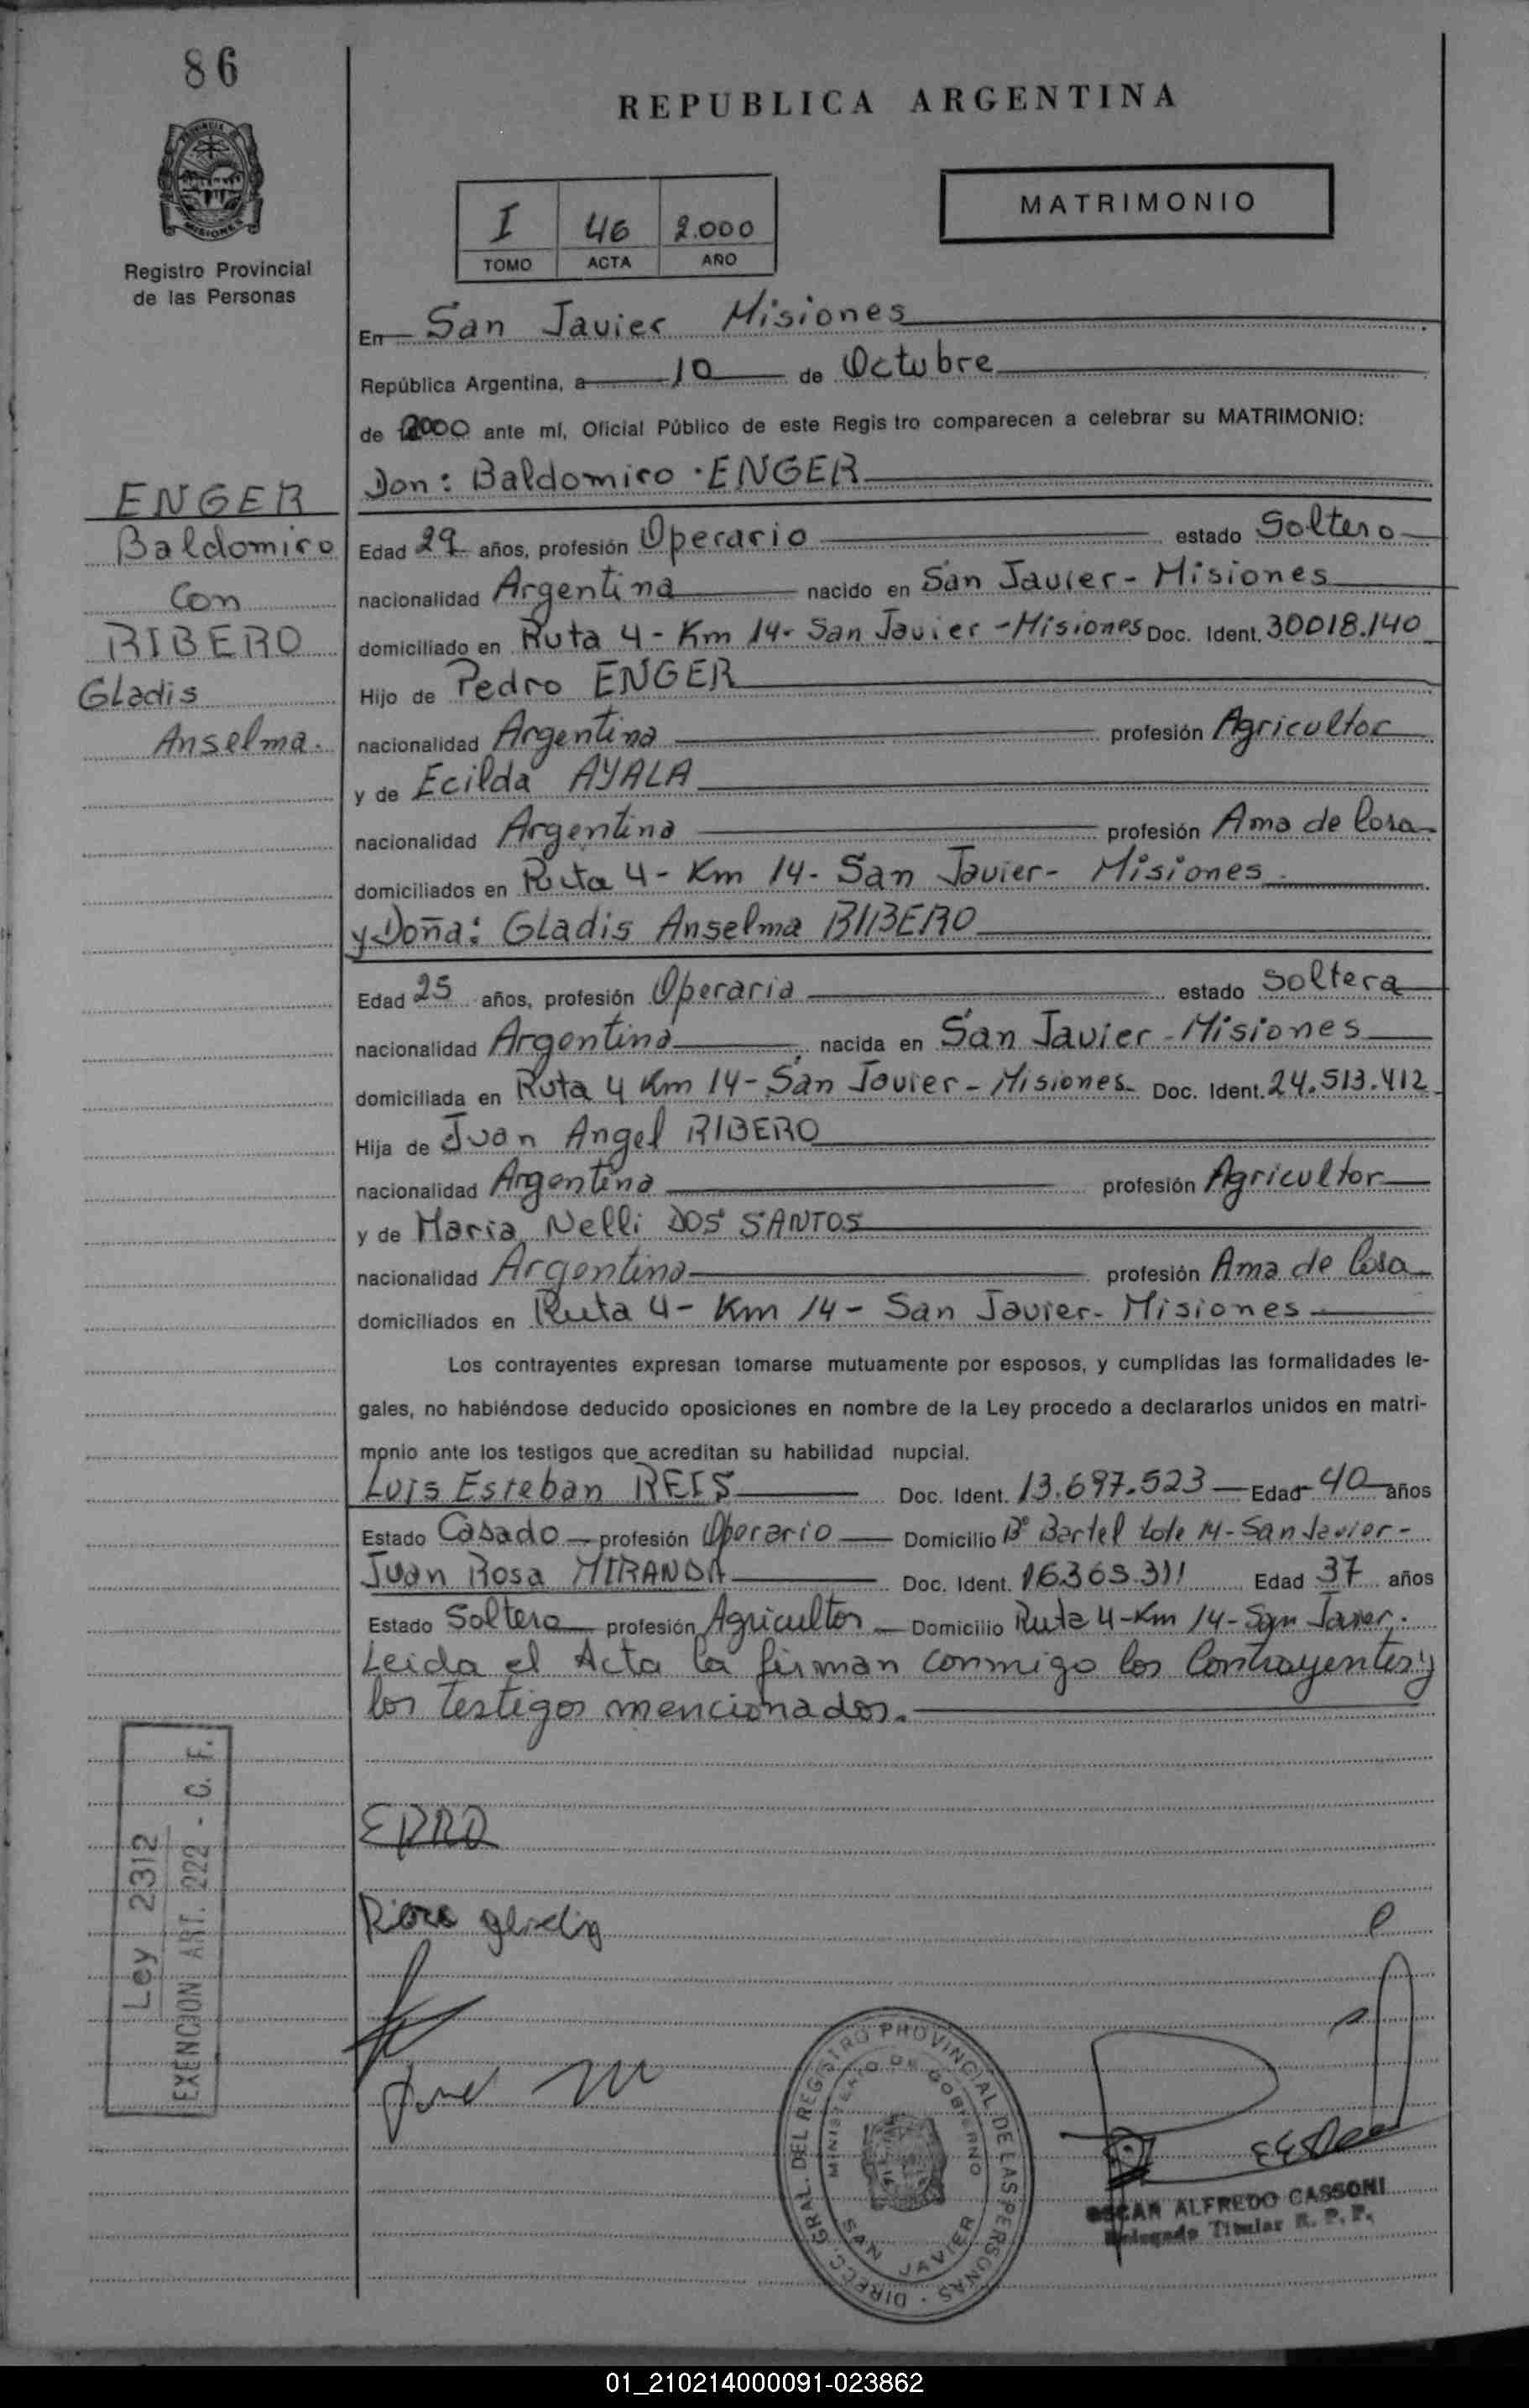 86
REPUBLICA ARGENTINA
PROVINCIA DE
MISIONES
Registro Provincial
de las Personas
I 46 2.000
TOMO ACTA AÑO
MATRIMONIO
En San Javier Misiones
República Argentina, a 10 de Octubre
de 2000 ante mí, Oficial Público de este Regis tro comparecen a celebrar su MATRIMONIO:
Don: Baldomiro ENGER
ENGER
Baldomiro
Con
RIBERO
Gladis
Anselma.
Edad 29 años, profesión Operario estado Soltero
nacionalidad Argentina nacido en San Javier - Misiones
domiciliado en Ruta 4 - Km 14- San Javier - Misiones Doc. Ident. 30018.140
Hijo de Pedro ENGER
nacionalidad Argentina profesión Agricultor
y de Ecilda AYALA
nacionalidad Argentina profesión Ama de Casa
domiciliados en Ruta 4 - Km 14- San Javier- Misiones
y Doña: Gladis Anselma RIBERO
Edad 25 años, profesión Operaria estado Soltera
nacionalidad Argentina nacida en San Javier - Misiones
domiciliada en Ruta 4 Km 14 - San Javier - Misiones Doc. Ident. 24.513.412
Hija de Juan Angel RIBERO
nacionalidad Argentina profesión Agricultor
y de Maria Nelli DOS SANTOS
nacionalidad Argentina profesión Ama de Casa
domiciliados en Ruta 4 - Km 14 - San Javier- Misiones
Los contrayentes expresan tomarse mutuamente por esposos, y cumplidas las formalidades le-
gales, no habiéndose deducido oposiciones en nombre de la Ley procedo a declararlos unidos en matri-
monio ante los testigos que acreditan su habilidad nupcial.
Luis Esteban REIS Doc. Ident. 13.697.523 Edad 40 años
Estado Casado profesión Operario Domicilio Bº Bartel Lote 14 - San Javier -
Juan Rosa MIRANDA Doc. Ident. 16.363.311 Edad 37 años
Estado Soltero profesión Agricultor Domicilio Ruta 4 - Km 14 - San Javier.
Leida el Acta la firman conmigo los Contrayentes y
los testigos mencionados.
Ley 2312
EXENCION ART. 222 - C. F.
DIRECC. GRAL. DEL REGISTRO PROVINCIAL DE LAS PERSONAS
MINISTERIO DE GOBIERNO
SAN JAVIER
OSCAR ALFREDO CASSONI
Delegado Titular R. P. P.
01_210214000091-023862